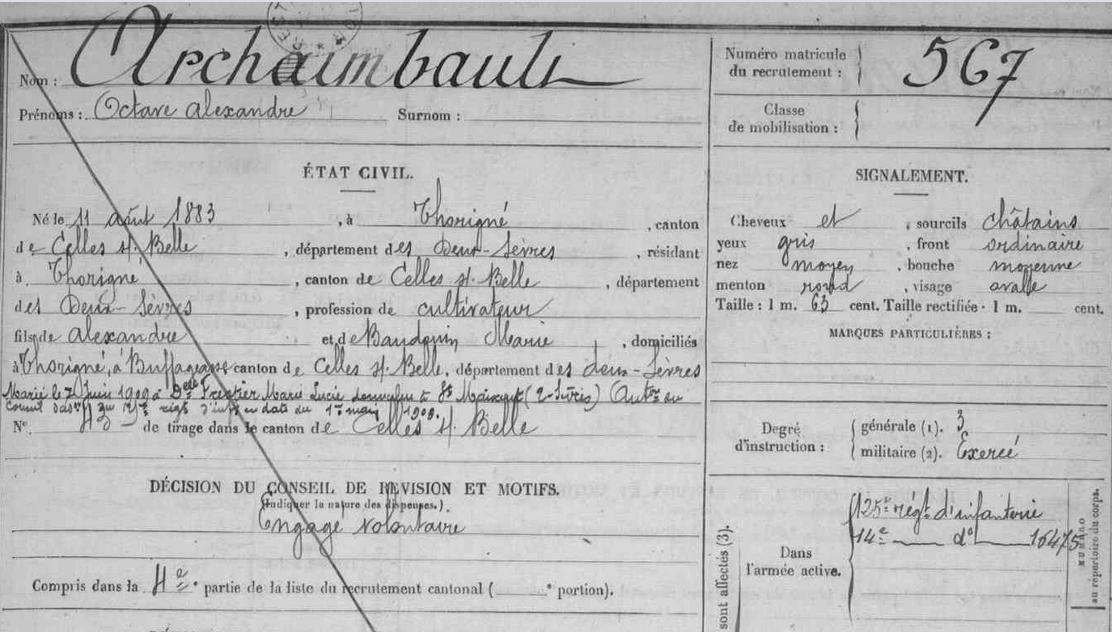 Nom : Archaimbault
Prénoms : Octave Alexandre Surnom :
Numéro matricule du recrutement : 567
Classe de mobilisation :
ÉTAT CIVIL.
Né le 11 août 1883, à Thorigné, canton
de Celles s/ Belle, département des Deux-Sèvres, résidant
à Thorigné, canton de Celles s/ Belle, département
des Deux-Sèvres, profession de cultivateur
fils de Alexandre et de Baudouin Marie, domiciliés
à Thorigné, à canton de Celles s/ Belle, département des deux-Sèvres
Marié le Juin 1909 à Delle Marie Lucie domiciliée à St Maixent (2-Sèvres) Auton du
Conseil d'adon du régt d'infie en date du 1er mai 1909.
N° 43 de tirage dans le canton de Celles s/ Belle
DÉCISION DU CONSEIL DE RÉVISION ET MOTIFS.
(Indiquer la nature des dispenses.)
Engagé volontaire
Compris dans la 4e partie de la liste du recrutement cantonal ( e portion).
SIGNALEMENT.
Cheveux et, sourcils châtains
yeux gris, front ordinaire
nez moyen, bouche moyenne
menton rond, visage ovale
Taille : 1 m. 63 cent. Taille rectifiée · 1 m. cent.
MARQUES PARTICULIÈRES :
Degré d'instruction : générale (1). 3
militaire (2). Exercé
sont affectés (3).
Dans l'armée active.
125e régt d'infanterie
14e do 16475
NUMÉRO
au répertoire du corps.